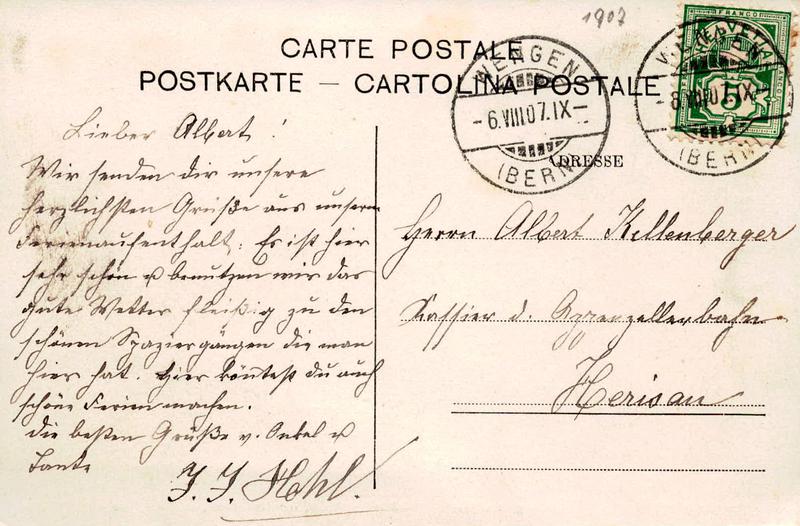 1907
CARTE POSTALE
POSTKARTE – CARTOLINA POSTALE
WENGEN
-6.VIII 07.IX-
(BERN)
WENGEN
-6.VIII 07.IX-
(BERN)
FRANCO
HELVETIA
5
ADRESSE
Lieber Albert!
Wir senden dir unsere
herzlichsten Grüße aus unserm
Ferienaufenthalt. Es ist hier
sehr schön u benutzen wir das
gute Wetter fleißig zu den
schönen Spaziergängen die man
hier hat. Hier könntest du auch
schöne Ferien machen.
Die besten Grüße v. Onkel u
Tante
J. J. Hohl.
Herrn Albert Kellenberger
Kassier d. Appenzellerbahn
Herisau